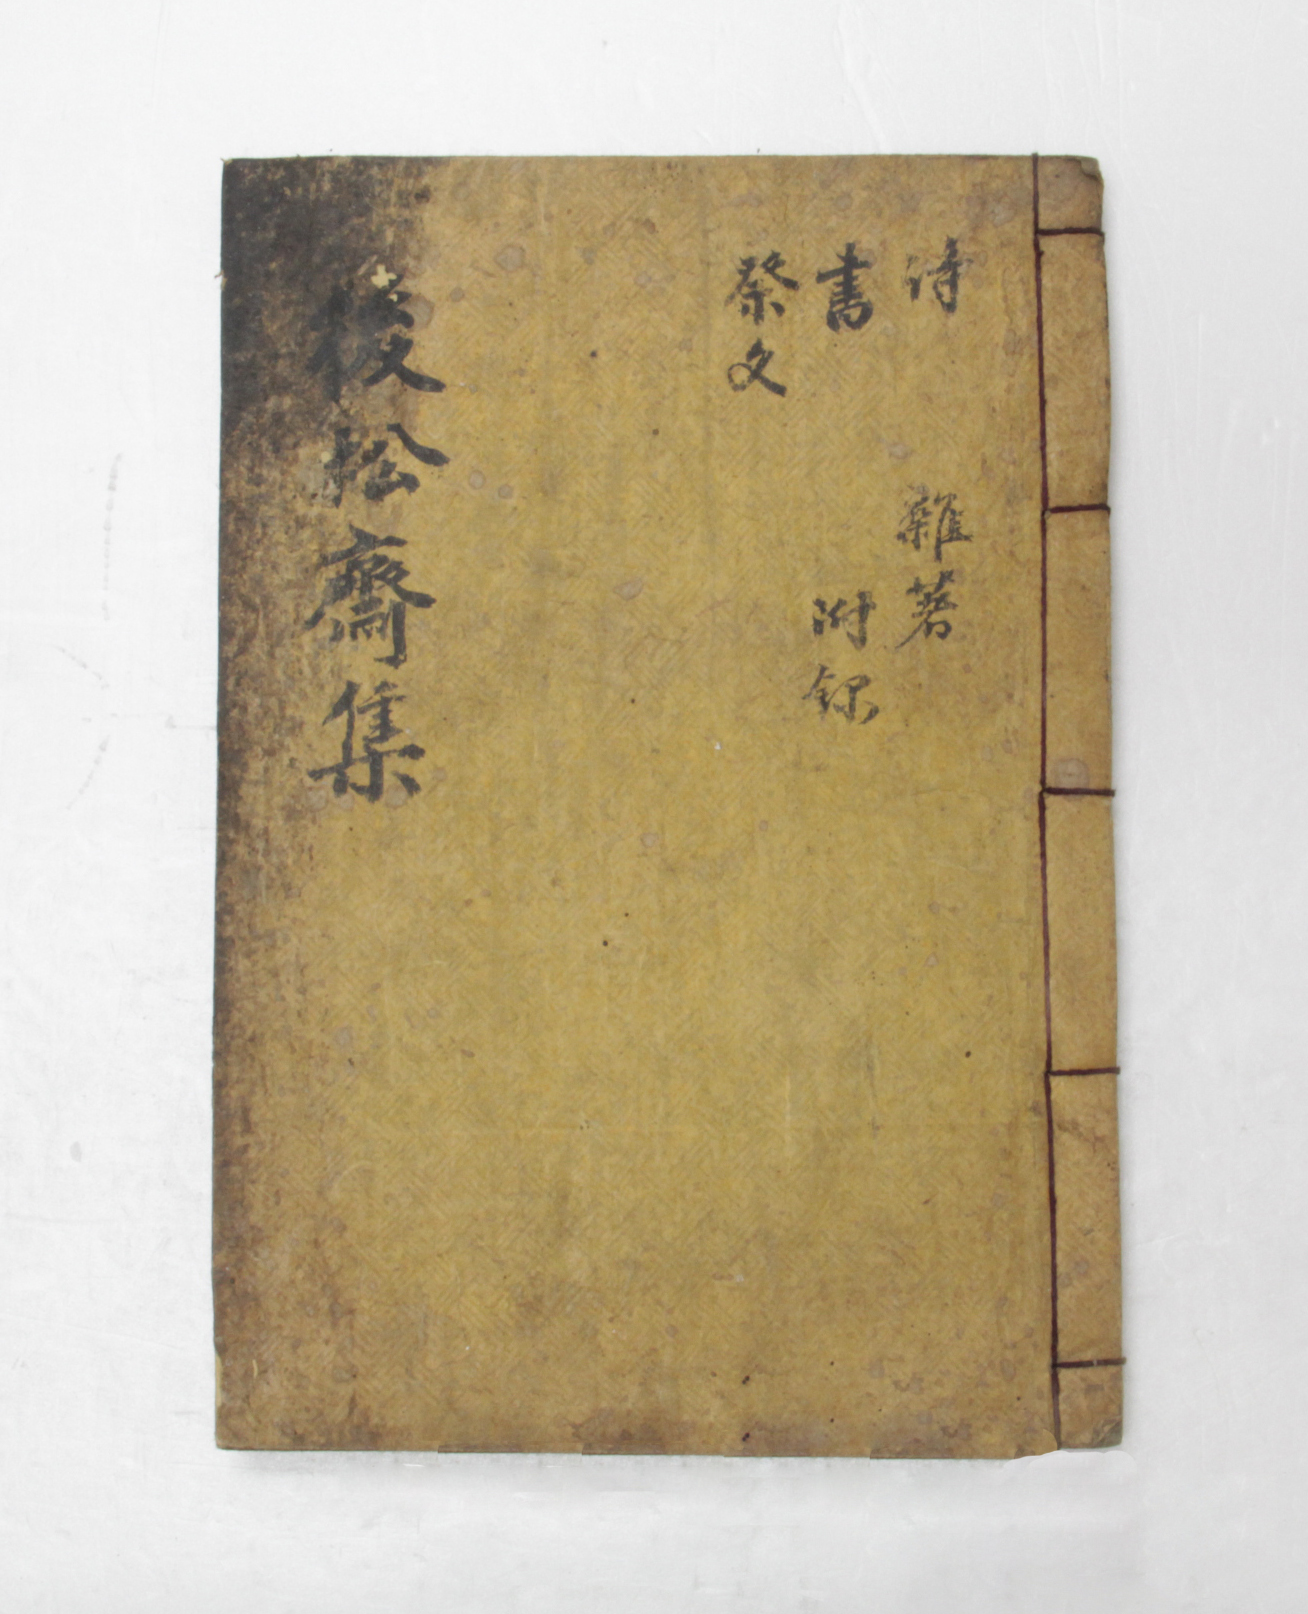 詩 雜著
書 附錄
祭文
後松齋集